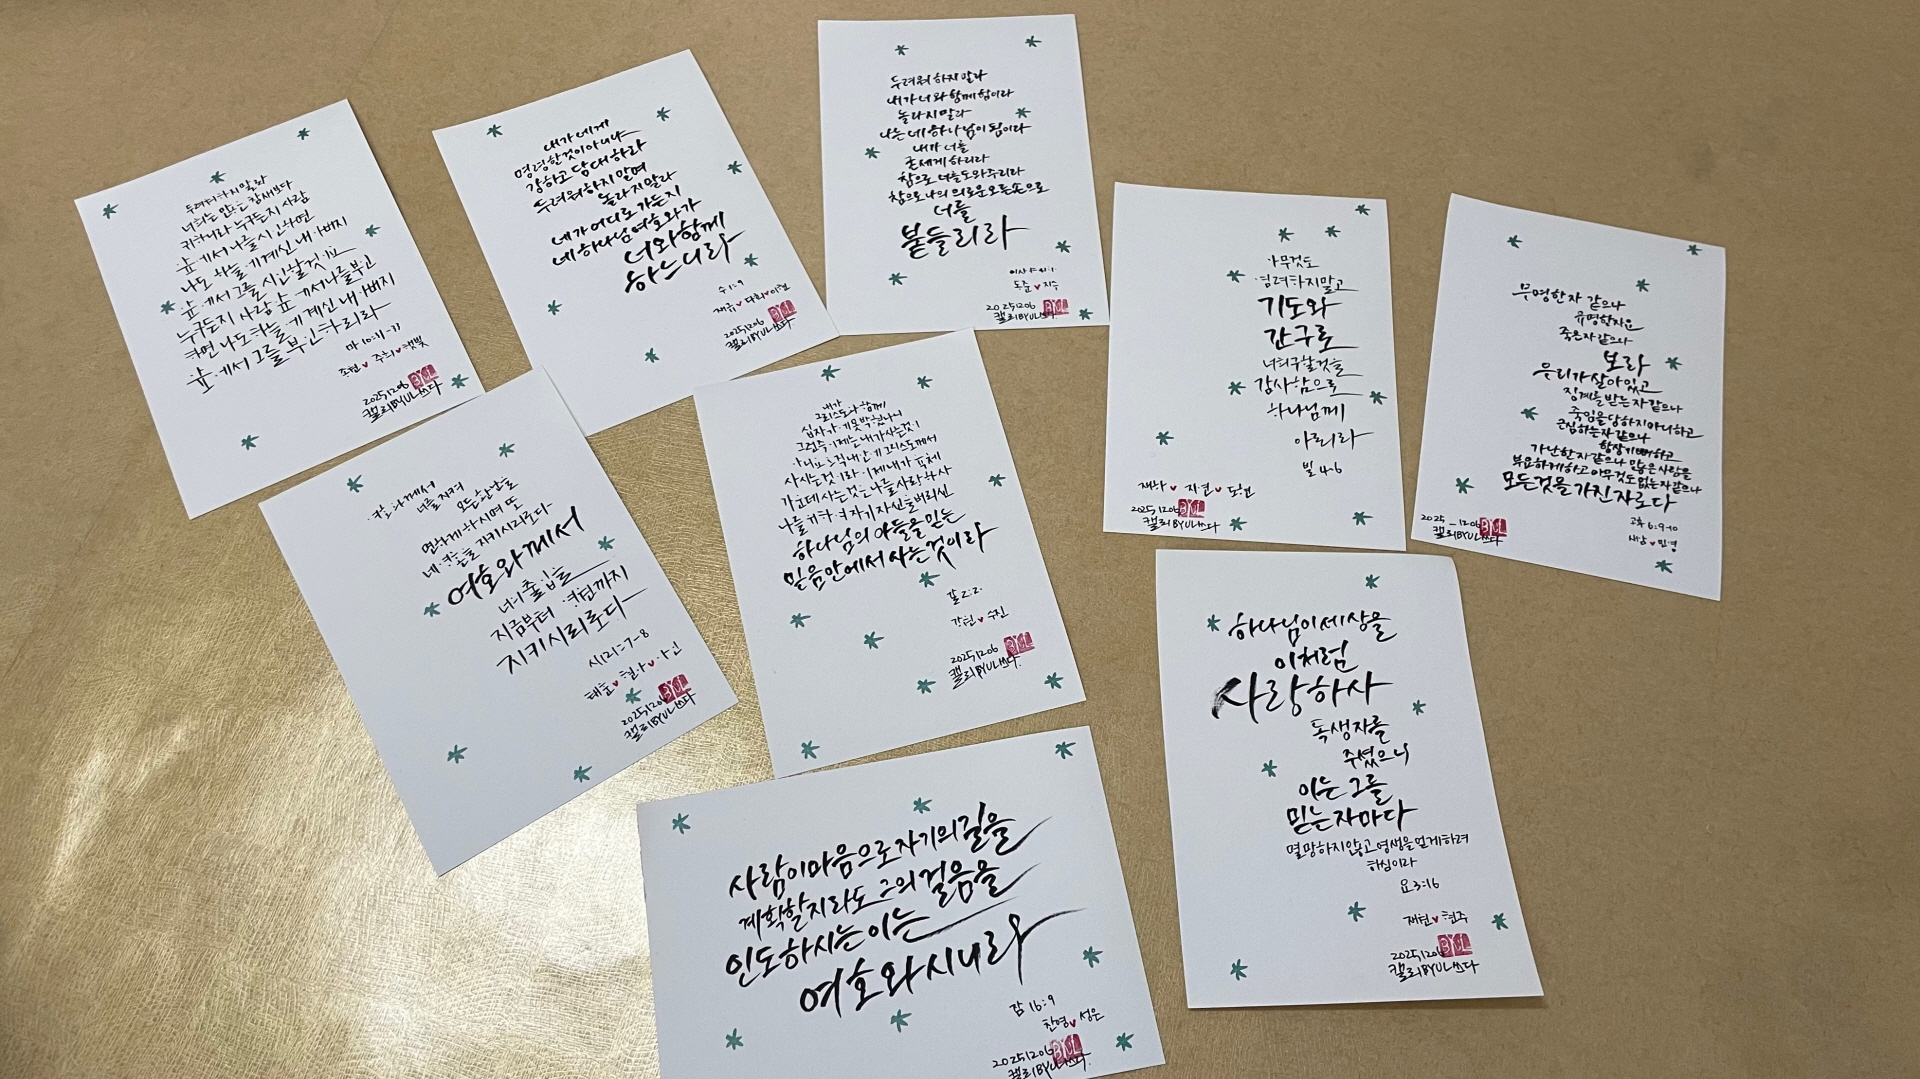 두려워하지말라
너희는 많은 참새보다
귀하니라 누구든지 사람
앞에서 나를 시인하면
나도 하늘에 계신 내 아버지
앞에서 그를 시인할것이요
누구든지 사람 앞에서 나를 부인
하면 나도 하늘에 계신 내 아버지
앞에서 그를 부인하리라
마 10:31-33
주희♥햇빛
20251206
캘리BYUL쓰다
내가 네게
명령한것이 아니냐
강하고 담대하라
두려워하지 말며
놀라지 말라
네가 어디로 가든지
네 하나님 여호와가
너와 함께
하느니라
수1:9
20251206
캘리BYUL쓰다
두려워 하지 말라
내가 너와 함께 함이라
놀라지 말라
나는 네 하나님이 됨이다
내가 너를
굳세게 하리라
참으로 너를 도와주리라
참으로 나의 의로운 오른손으로
너를
붙들리라
동준♥지수
20251206
캘리BYUL쓰다
아무것도
염려하지말고
기도와
간구로
너희 구할것을
감사함으로
하나님께
아뢰라
빌 4:6
20251206
캘리BYUL쓰다
무명한자 같으나
유명한자요
죽은자 같으나
보라
우리가 살아있고
징계를 받는 자 같으나
죽임을 당하지 아니하고
근심하는자 같으나
항상 기뻐하고
가난한자 같으나 많은 사람을
부요하게하고 아무것도 없는자 같으나
모든것을 가진 자로다
고후 6:9-10
2025-1206
캘리BYUL쓰다
여호와께서
너를 지켜 모든 환난을
면하게 하시며 또
네 영혼을 지키시리로다
여호와께서
너의 출입을
지금부터 영원까지
지키시리로다
시121:7-8
20251206
캘리BYUL쓰다
내가
그리스도와 함께
십자가에 못박혔나니
그런즉 이제는 내가 사는것이
아니요 오직 내 안에 그리스도께서
사시는것이라 이제 내가 육체
가운데 사는것은 나를 사랑하사
나를 위하여 자기 자신을 버리신
하나님의 아들을 믿는
믿음안에서 사는것이라
강현♥수진
20251206
캘리BYUL쓰다
하나님이 세상을
이처럼
사랑하사
독생자를
주셨으니
이는 그를
믿는자마다
멸망하지않고 영생을 얻게하려
하심이라
요3:16
재현♥현주
20251206
캘리BYUL쓰다
사람이 마음으로 자기의 길을
계획할지라도 그의 걸음을
인도하시는 이는
여호와시니라
잠 16:9
찬영♥성은
20251206
캘리BYUL쓰다